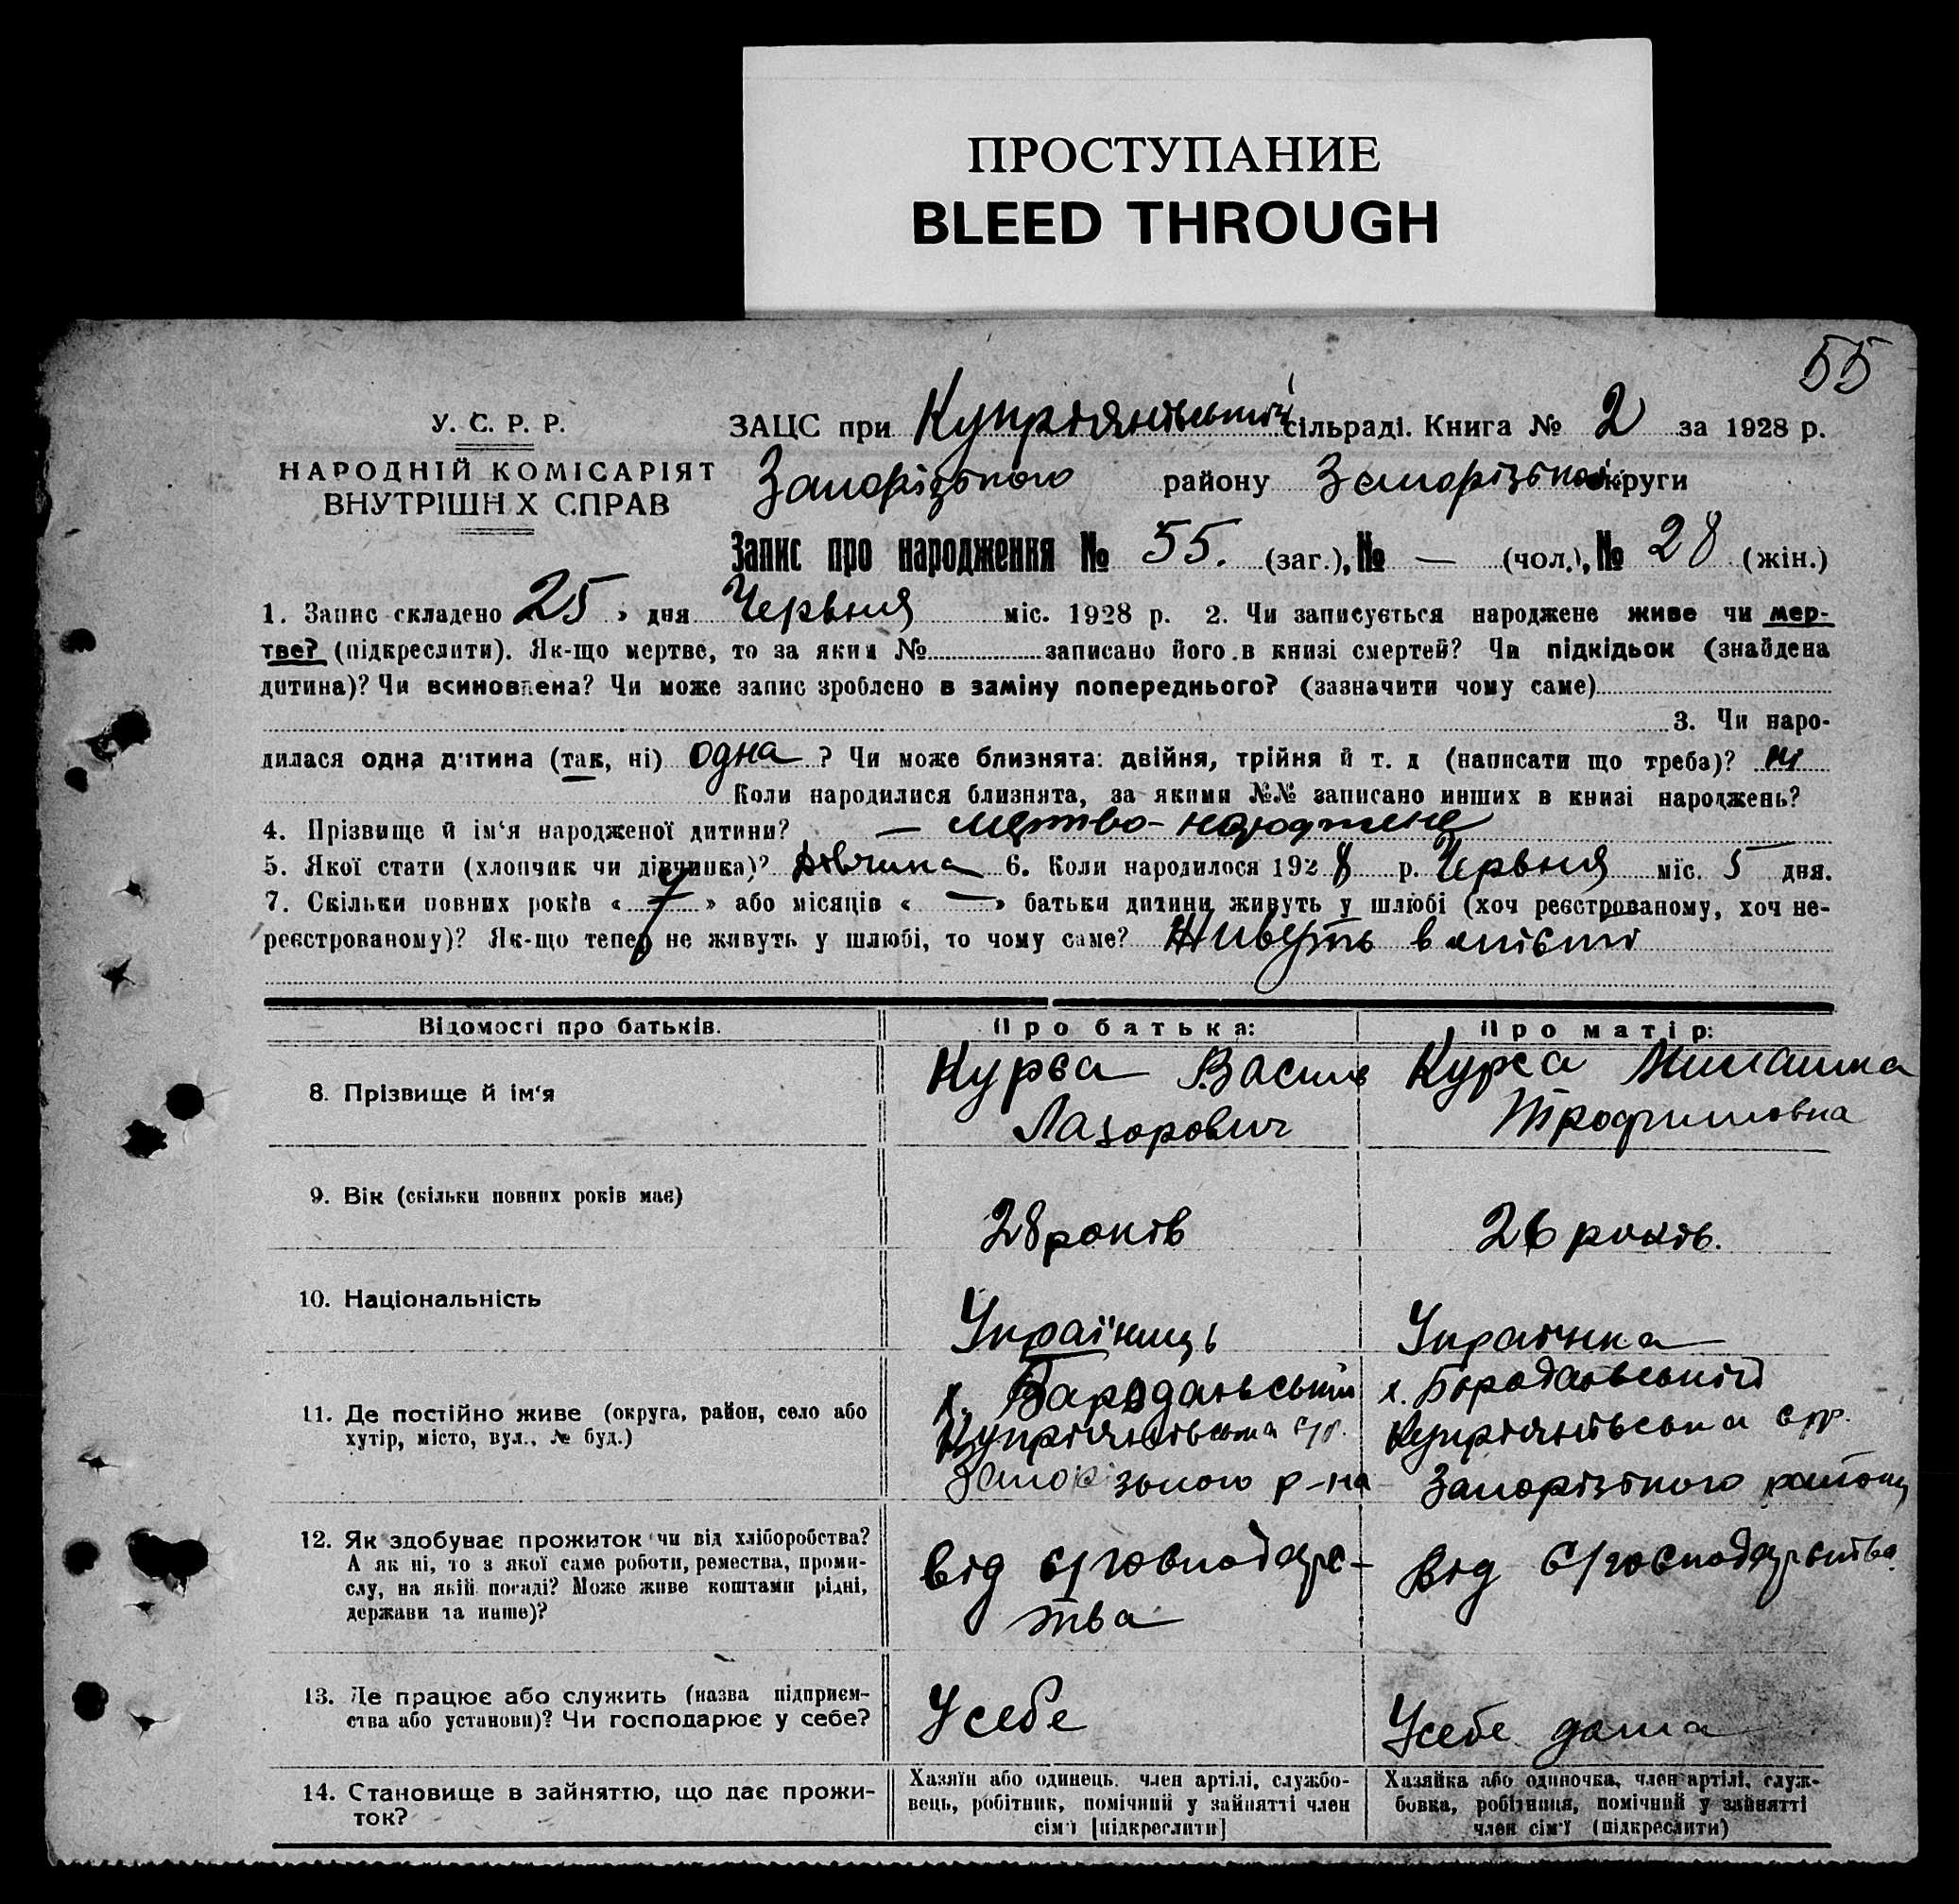 ПРОСТУПАНИЕ
BLEED THROUGH
55
У. С. Р. Р.
НАРОДНІЙ КОМІСАРІЯТ
ВНУТРІШН Х СПРАВ
ЗАЦС при Купріянівській сільраді. Книга № 2 за 1928 р.
Запорізького району Запорізької округи
Запис про народження № 55. (заг.), № — (чол.), № 28 (жін.)
1. Запис складено 25 » дня Червня міс. 1928 р. 2. Чи записується народжене живе чи мер-
тве? (підкреслити). Як-що мертве, то за яким № записано його в книзі смертей? Чи підкідьок (знайдена
дитина)? Чи всиновлена? Чи може запис зроблено в заміну попереднього? (зазначити чому саме)
3. Чи наро-
дилася одна дитина (так, ні) одна ? Чи може близнята: двійня, трійня й т. д (написати що треба)? ні
Коли народилися близнята, за якими №№ записано инших в книзі народжень?
4. Прізвище й ім‘я народженої дитини? — мертво-народжене
5. Якої стати (хлопчик чи дівчинка)? Дівчина 6. Коли народилося 1928 р. Червня міс. 5 дня.
7. Скільки повних років « 7 » або місяців « — » батьки дитини живуть у шлюбі (хоч реєстрованому, хоч не-
реєстрованому)? Як-що тепер не живуть у шлюбі, то чому саме? Живуть в
Відомості про батьків.
Про батька:
Про матір:
8. Прізвище й ім‘я
Курса Василь
Лазорович
Курса Милашка
Трофимовна
9. Вік (скільки повних років має)
28 років
26 років.
10. Національність
Україниць
Українка
11. Де постійно живе (округа, район, село або
хутір, місто, вул., № буд.)
х.
Купріянівська с/р.
Запорізького р-на
х.
Купріянівська с/р.
Запорізького району
12. Як здобуває прожиток чи від хліборобства?
А як ні, то з якої саме роботи, ремества, проми-
слу, на якій посаді? Може живе коштами рідні,
держави та инше)?
від с/госнодарс-
тва
від с/госнодарства
13. Де працює або служить (назва підприєм-
ства або установи)? Чи господарює у себе?
У себе
У себе дома
14. Становище в зайняттю, що дає прожи-
ток?
Хазяїн або одинець, член артілі, службо-
вець, робітник, помічний у зайнятті член
сім'ї [підкреслити]
Хазяйка або одиночка, член артілі, служ-
бовка, робітниця, помічний у зайнятті
член сім'ї (підкреслити)